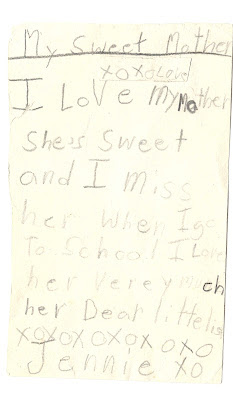 My Sweet Mother
XOXOLove
I LoVe MyMother
She's Sweet
and I miss
her when I go
To School I Love
her verey much
her Dear little
XOXOXOXOXOXO
Jennie XO